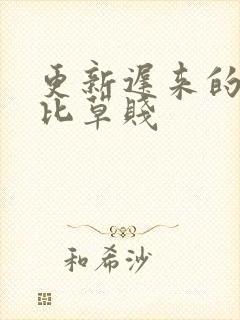 更新遲來的
比草賤
和希沙